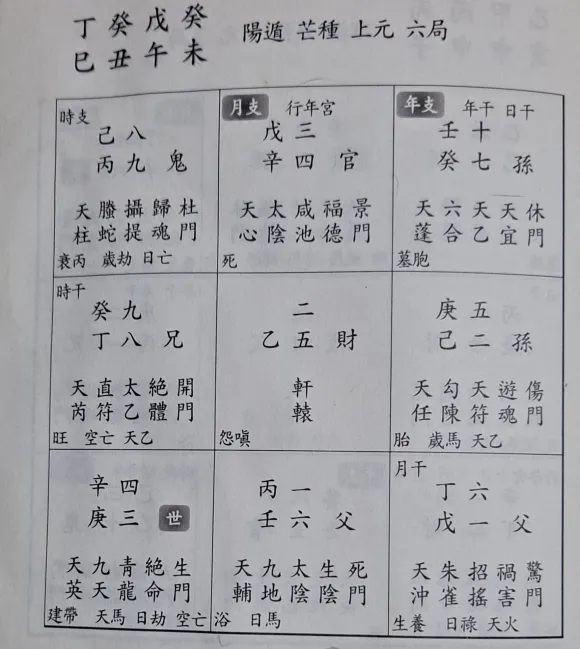 丁癸戊癸
巳丑午未
陽遁 芒種 上元 六局
時支
己八
丙九 鬼
天螣攝歸杜
柱蛇提魂門
衰丙 歲劫 日亡
月支 行年宮
戊三
辛四 官
天太咸福景
心陰池德門
死
年支 年干 日干
壬十
癸七 孫
天六天天休
蓬合乙宜門
墓胞
時干
癸九
丁八 兄
天直太絕開
芮符乙體門
旺 空亡 天乙
二
乙五 財
軒
轅
怨嗔
庚五
己二 孫
天勾天遊傷
任陳符魂門
胎 歲馬 天乙
辛四
庚三 世
天九青絕生
英天龍命門
建帶 天馬 日劫 空亡
丙一
壬六 父
天九太生死
輔地陰陰門
浴 日馬
月干
丁六
戊一 父
天朱招禍驚
沖雀搖害門
生養 日祿 天火